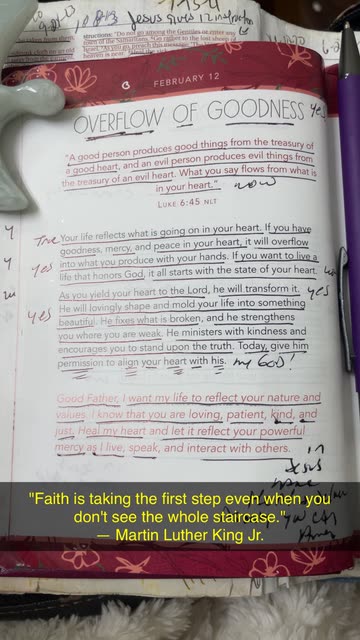 Jesus gives 12 instruction
FEBRUARY 12
OVERFLOW OF GOODNESS yes
"A good person produces good things from the treasury of
a good heart, and an evil person produces evil things from
the treasury of an evil heart. What you say flows from what is
in your heart." wow
LUKE 6:45 NLT
True Your life reflects what is going on in your heart. If you have
goodness, mercy, and peace in your heart, it will overflow
yes into what you produce with your hands. If you want to live a
life that honors God, it all starts with the state of your heart.
As you yield your heart to the Lord, he will transform it. yes
He will lovingly shape and mold your life into something
yes beautiful. He fixes what is broken, and he strengthens
you where you are weak. He ministers with kindness and
encourages you to stand upon the truth. Today, give him
permission to align your heart with his. my God!
Good Father, I want my life to reflect your nature and
values. I know that you are loving, patient, kind, and
just. Heal my heart and let it reflect your powerful
mercy as I live, speak, and interact with others.
Jesus
"Faith is taking the first step even when you
don't see the whole staircase."
— Martin Luther King Jr.